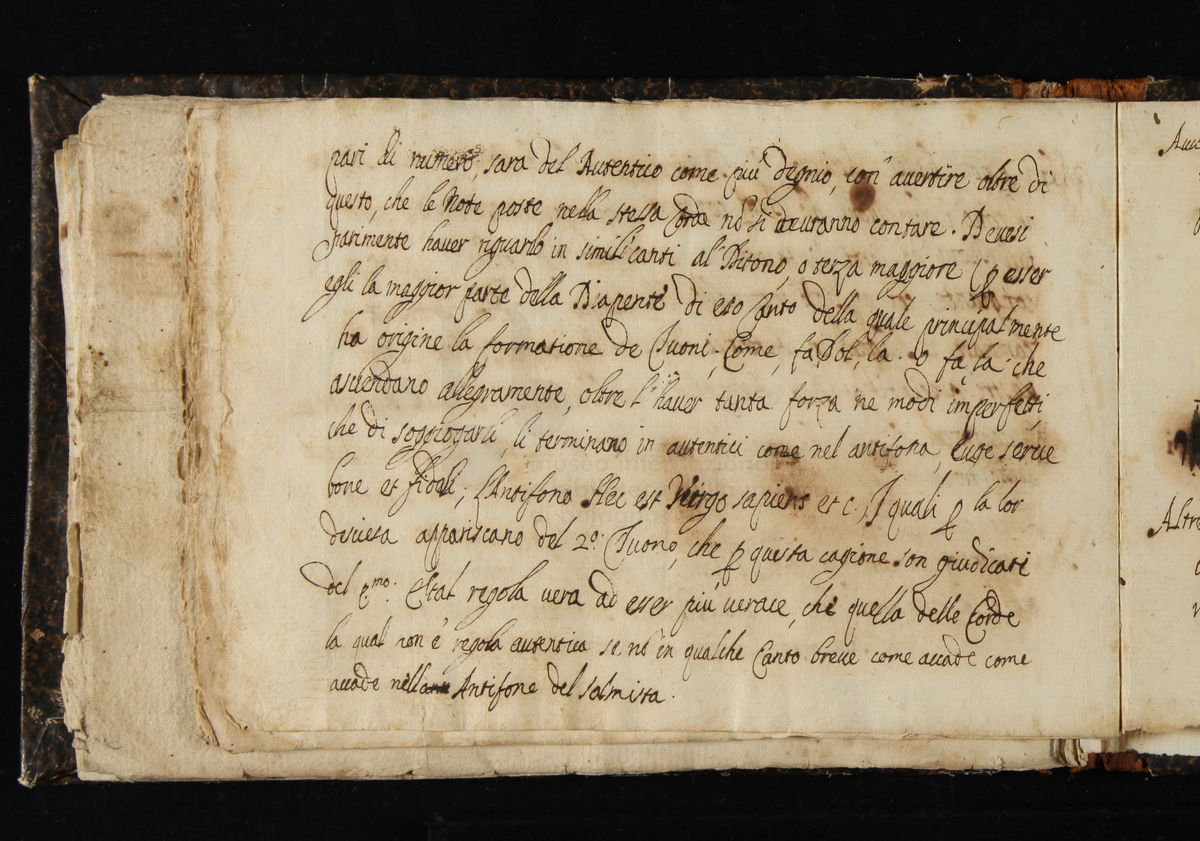 pari di numero, sara del Autentico come più degnio, con avertire oltre di
questo, che le Note poste nella stessa corda nō si devranno contare. Devesi
parimente haver riguardo in simili canti al Ditono, o terza maggiore (ꝑ esser
egli la maggior parte della Diapente di eso Canto della quale principalmente
ha origine la formatione de Tuoni; Come, fa sol, la. o fa, la. che
ascendano allegramente, oltre l'haver tanta forza ne modi imperfetti,
che di soggiogarli, li terminano in autentici come nel antifona, Euge serve
bone et fideli; l'Antifona Hec est Virgo sapiens et c.; I quali ꝑ la lor
disciesa appariscano del 2º. Tuono, che ꝑ questa cagione son giudicati
del pmo. E tal regola vera ad esser più verace, che quella delle Corde
la qual non è regola autentica se nō in qualche Canto breve come accade come
accade nell Antifone del salmista.
Avve
Altre